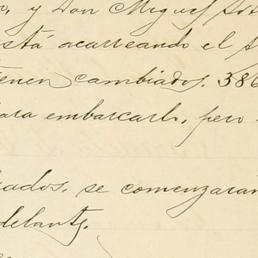 y Don Miguel
está acarreando el
tienen cambiados. 386
para embarcarlo, pero
se comenzarán
adelante.